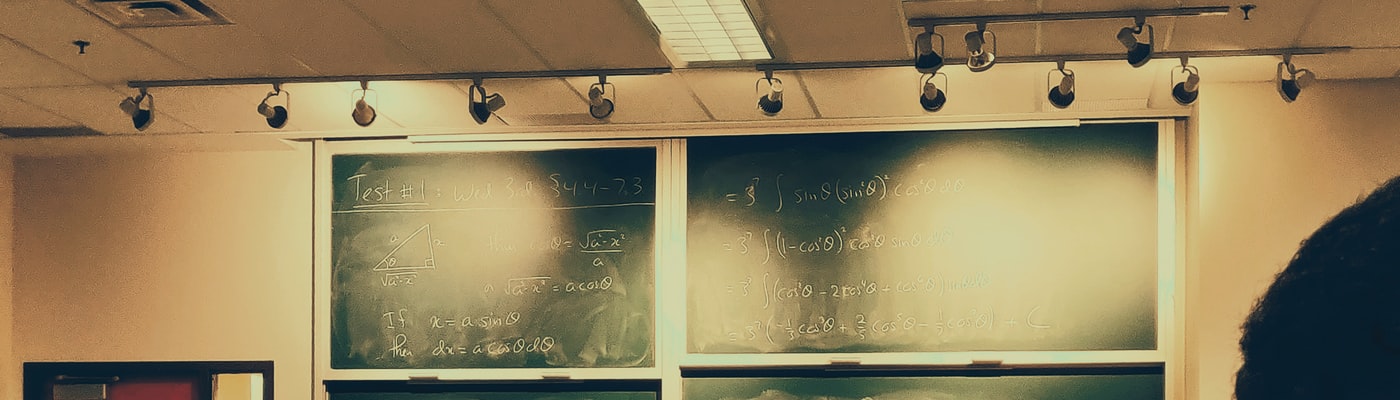 Test #1: Wed 3rd §4.4-7.3
a x
θ
√a²-x²
then cosθ = √a²-x² / a
or √a²-x² = a cosθ
If x = a sinθ
then dx = a cosθ dθ
= 3⁷ ∫ sinθ (sin²θ)² cos²θ dθ
= 3⁷ ∫ (1-cos²θ)² cos²θ sinθ dθ
= 3⁷ ∫ (cos²θ - 2cos⁴θ + cos⁶θ) sinθ dθ
= 3⁷ (-⅓ cos³θ + ⅖ cos⁵θ - ⅐ cos⁷θ) + C